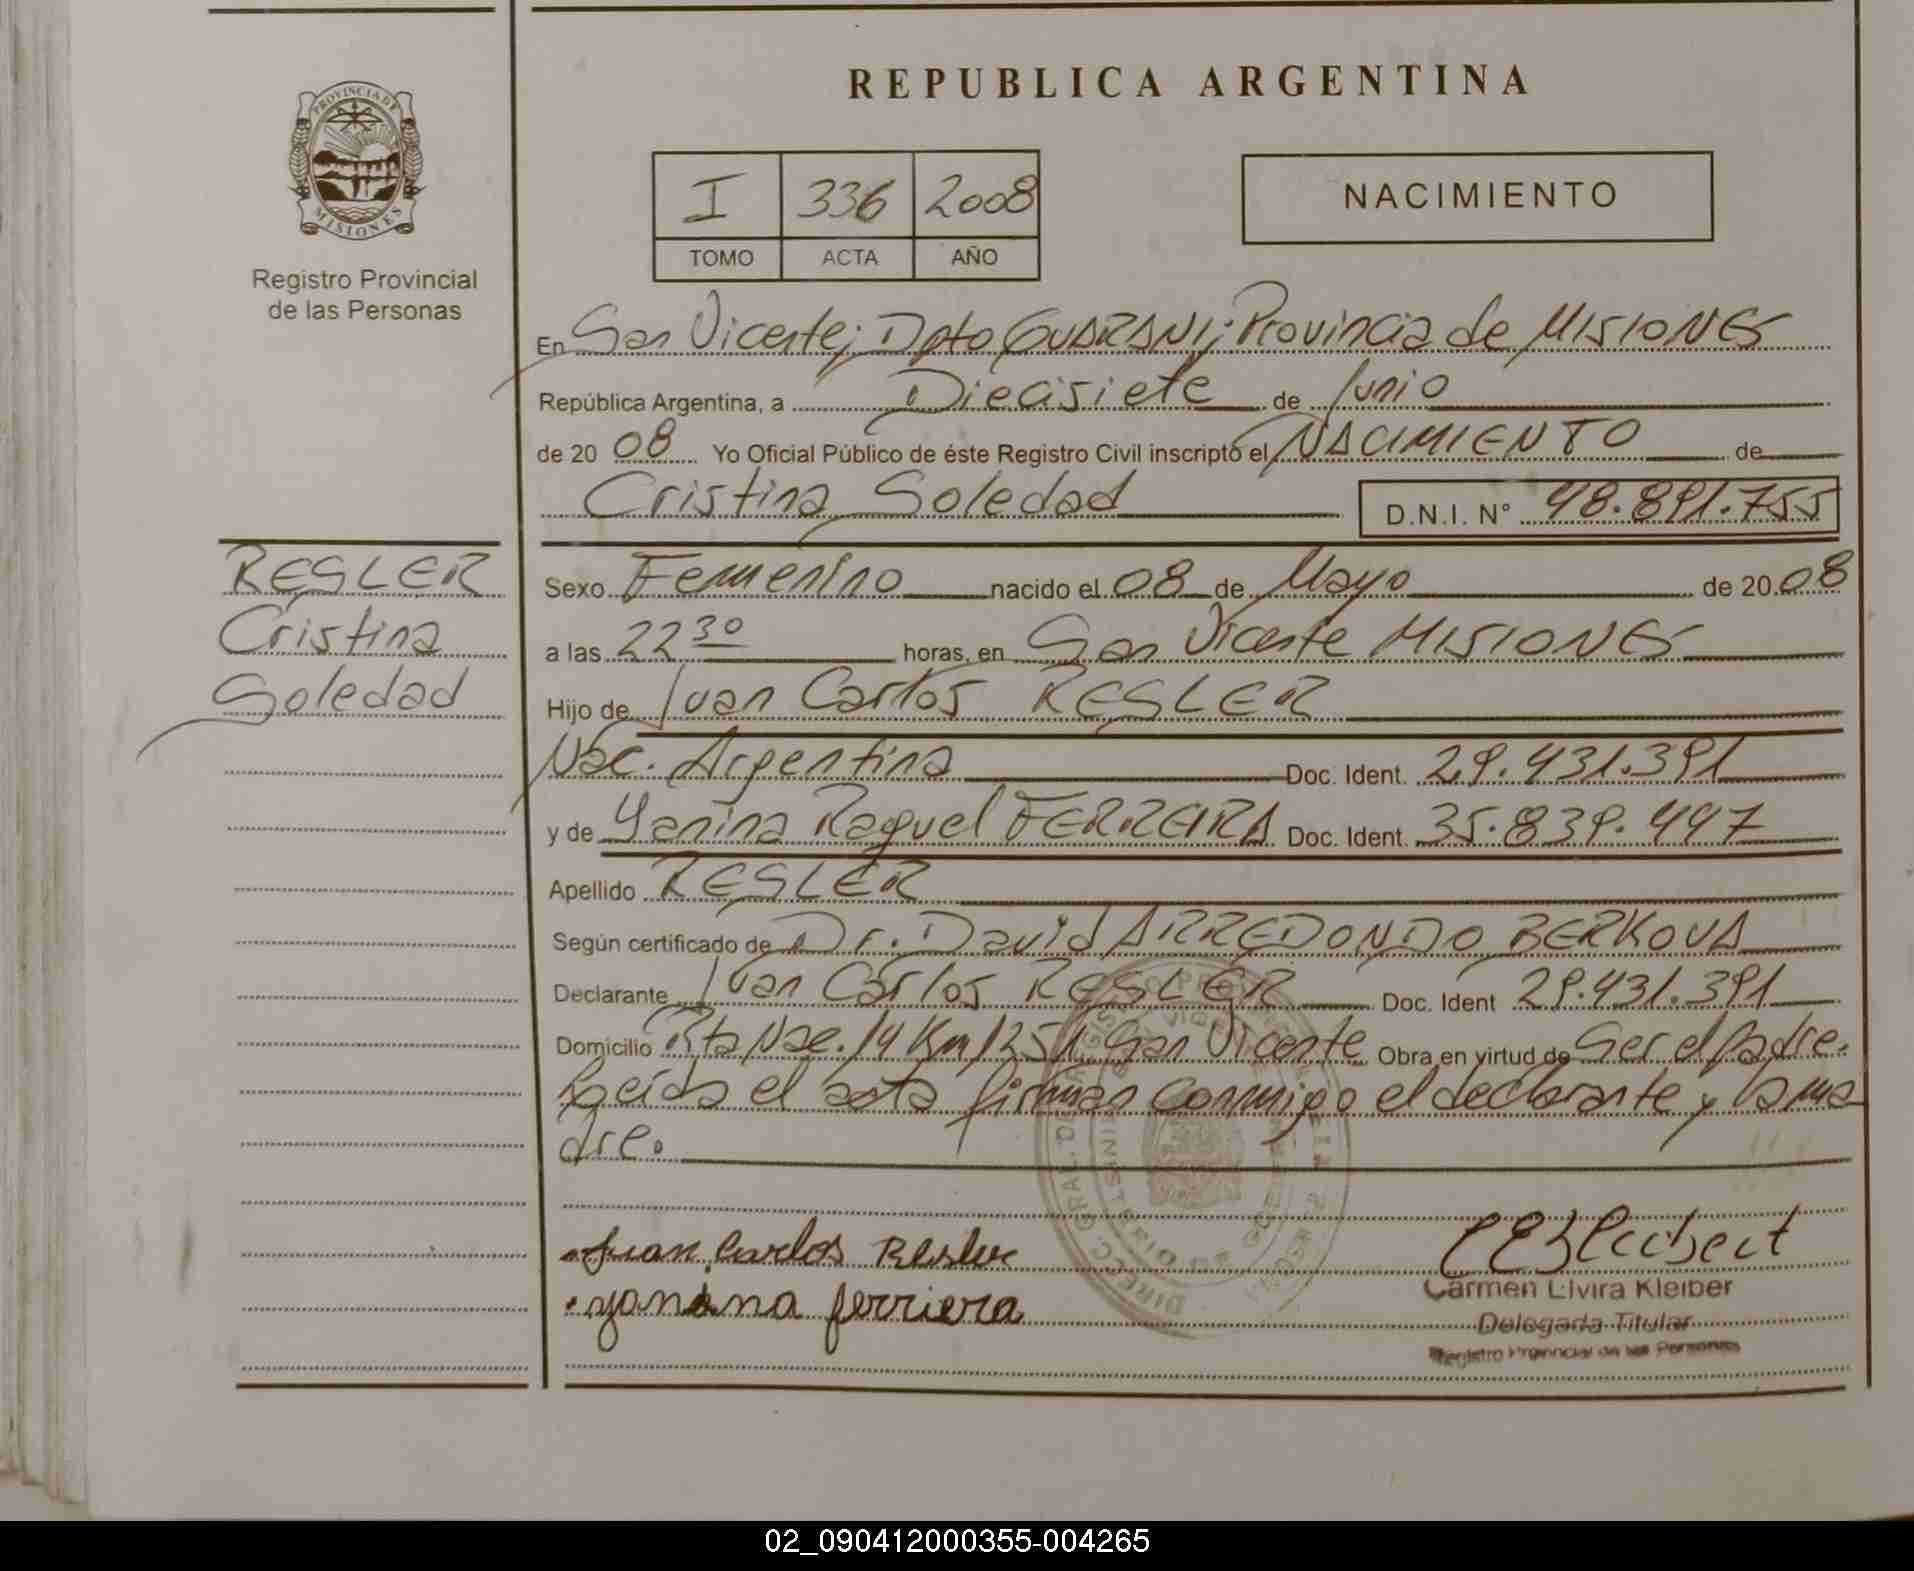 REPUBLICA ARGENTINA
PROVINCIA DE
MISIONES
Registro Provincial
de las Personas
I 336 2008
TOMO ACTA AÑO
NACIMIENTO
En San Vicente; Dpto GUARANI; Provincia de MISIONES
República Argentina, a Diecisiete de Junio
de 20 08 Yo Oficial Público de éste Registro Civil inscripto el NACIMIENTO de
Cristina Soledad D.N.I. N° 48.891.755
RESLER
Cristina
Soledad
Sexo Femenino nacido el 08 de Mayo de 20 08
a las 22 30 horas, en San Vicente MISIONES
Hijo de Juan Carlos RESLER
Nac. Argentina Doc. Ident. 29.431.391
y de Yanina Raquel FERREIRA Doc. Ident. 35.839.497
Apellido RESLER
Según certificado de Dr. David ARREDONDO BERKOVA
Declarante Juan Carlos RESLER Doc. Ident 29.431.391
Domicilio Rta Nac. 14 Km 1251 San Vicente Obra en virtud de Ser el padre.
Leída el acta firman conmigo el declarante y la ma
dre.
Juan Carlos Resler
yanina ferriera
Carmen Elvira Kleiber
Delegada Titular
Registro Provincial de las Personas
02_090412000355-004265